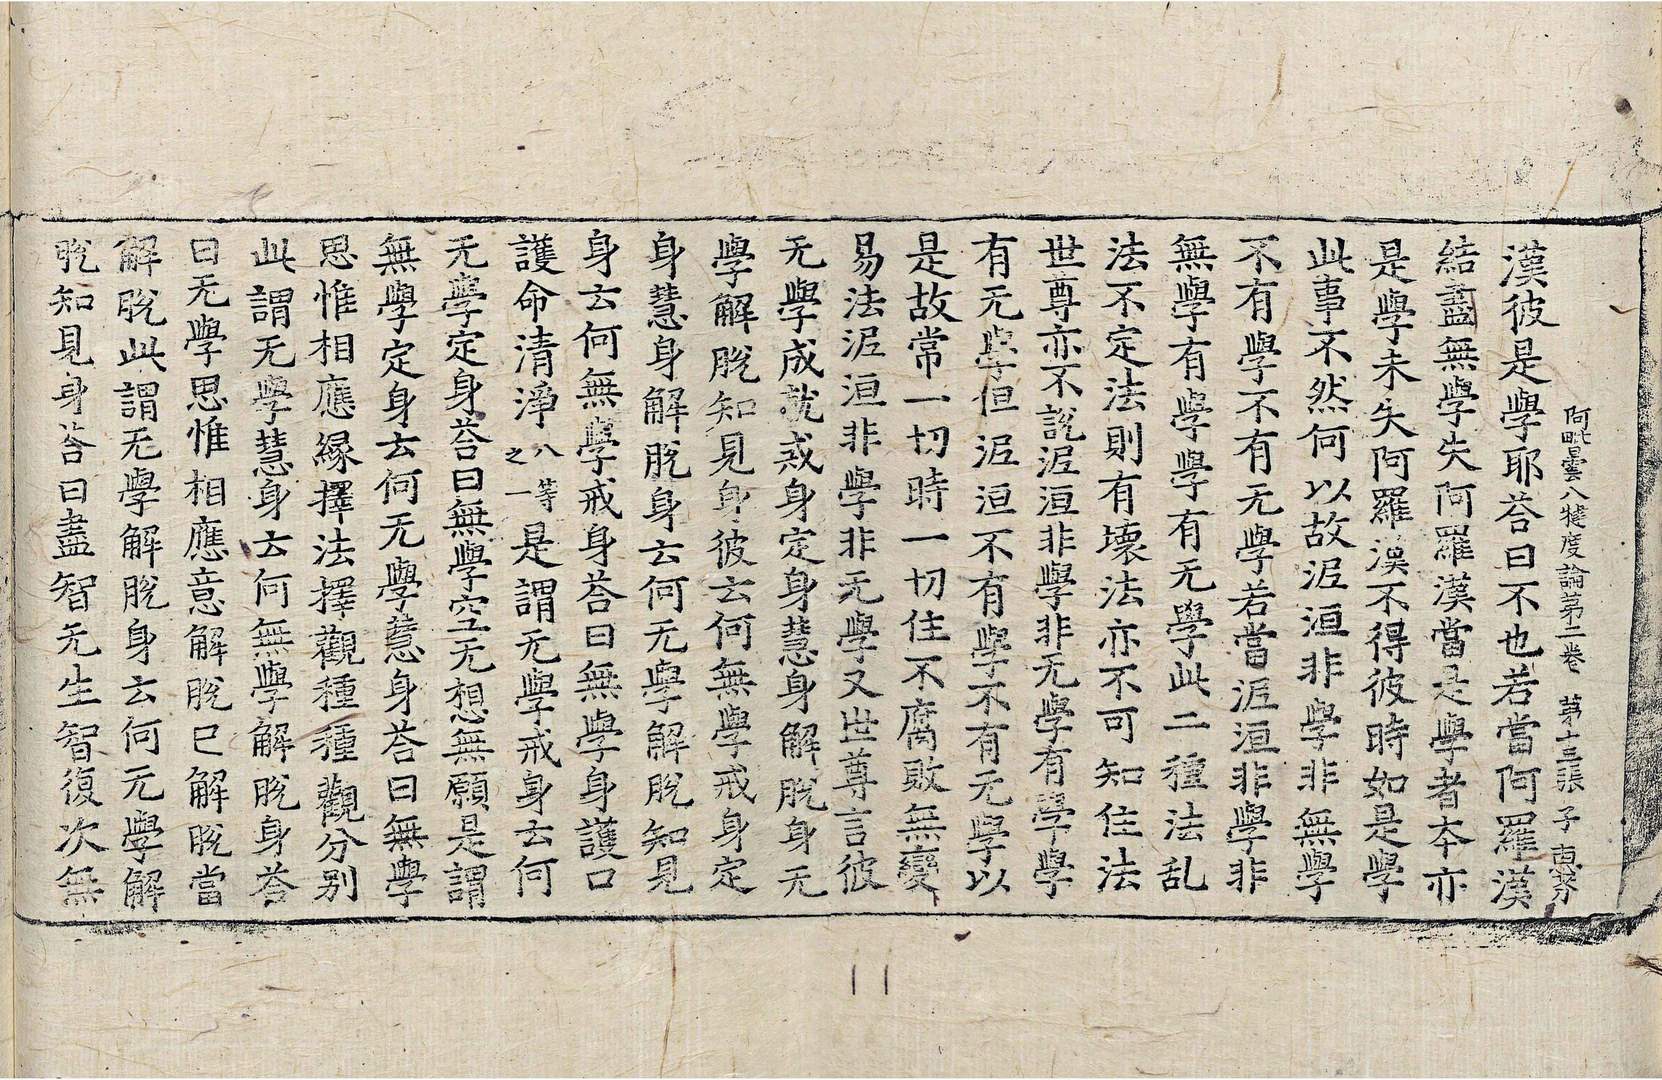 阿毗曇八犍度論第二卷　第十三張　子
漢彼是學耶荅曰不也若當阿羅漢
結盡無學失阿羅漢當是學者本亦
是學未失阿羅漢不得彼時如是學
此事不然何以故泥洹非學非無學
不有學不有无學若當泥洹非學非
無學有學學有无學此二種法乱
法不定法則有壞法亦不可知住法
世尊亦不說泥洹非學非无學有學學
有无學恒泥洹不有學不有无學以
是故常一切時一切住不腐敗無變
易法泥洹非學非无學又世尊言彼
无學成就戒身定身慧身解脫身无
學解脫知見身彼云何無學戒身定
身慧身解脫身云何无學解脫知見
身云何無學戒身荅曰無學身護口
護命清淨八等之一是謂无學戒身云何
无學定身荅曰無學空无想無願是謂
無學定身云何无學慧身荅曰無學
思惟相應緣擇法擇觀種種觀分別
此謂无學慧身云何無學解脫身荅
曰无學思惟相應意解脫已解脫當
解脫此謂无學解脫身云何无學解
脫知見身荅曰盡智无生智復次無